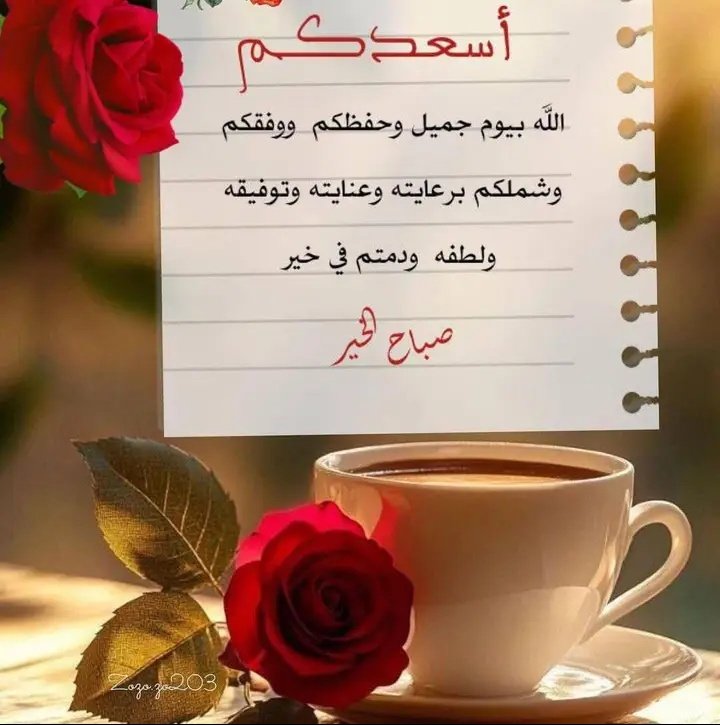 أسعدكم
اللَّه بيوم جميل وحفظكم ووفقكم
وشملكم برعايته وعنايته وتوفيقه
ولطفه ودمتم في خير
صباح الخير
Zozo.zo203